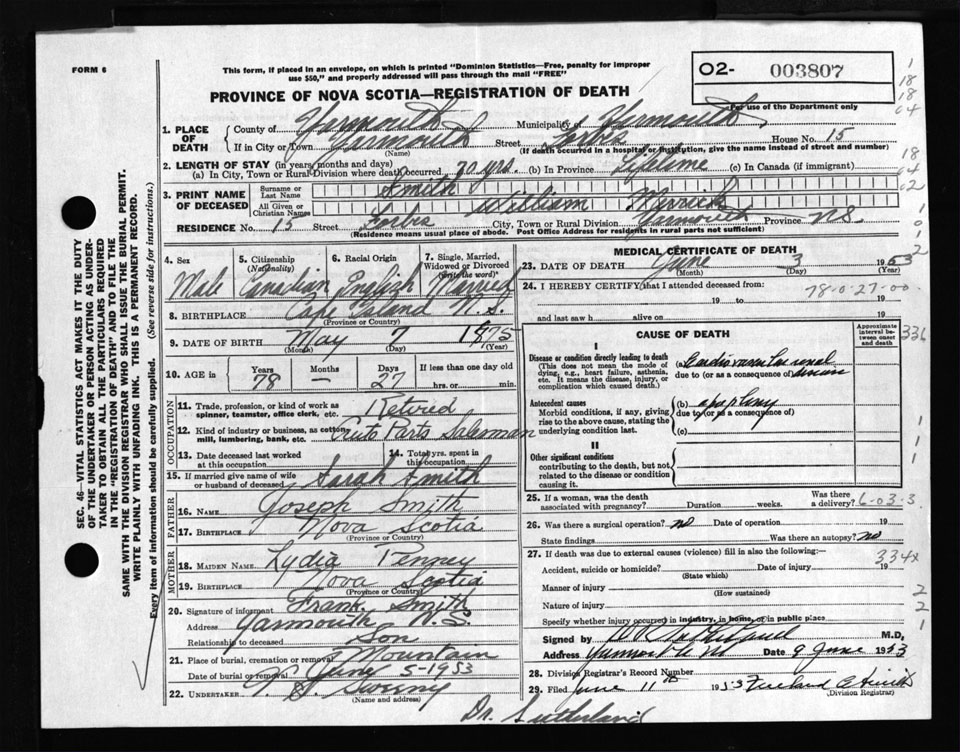 FORM 6
This form, if placed in an envelope, on which is printed "Dominion Statistics—Free, penalty for improper
use $50," and properly addressed will pass through the mail "FREE"
02- 003807
For use of the Department only
PROVINCE OF NOVA SCOTIA—REGISTRATION OF DEATH
1. PLACE OF DEATH
County of Yarmouth Municipality of Yarmouth
If in City or Town Yarmouth Street Forbes House No. 15
(Name) (If death occurred in a hospital or institution, give the name instead of street and number)
2. LENGTH OF STAY (in years, months and days)
(a) In City, Town or Rural Division where death occurred 70 yrs. (b) In Province Lifetime (c) In Canada (if immigrant)
3. PRINT NAME OF DECEASED
Surname or Last Name Smith
All Given or Christian Names William Merrick
RESIDENCE No. 15 Street Forbes City, Town or Rural Division Yarmouth Province N.S.
(Residence means usual place of abode. Post Office Address for residents in rural parts not sufficient)
4. Sex Male
5. Citizenship (Nationality) Canadian
6. Racial Origin English
7. Single, Married, Widowed or Divorced (write the word) Married
8. BIRTHPLACE Cape Island N.S.
(Province or Country)
9. DATE OF BIRTH May 7 1875
(Month) (Day) (Year)
10. AGE in Years 78 Months — Days 27 If less than one day old
hrs. or min.
OCCUPATION
11. Trade, profession, or kind of work as spinner, teamster, office clerk, etc. Retired
12. Kind of industry or business, as cotton mill, lumbering, bank, etc. Auto Parts Salesman
13. Date deceased last worked at this occupation
14. Total yrs. spent in this occupation
15. If married give name of wife or husband of deceased Sarah Smith
FATHER
16. Name Joseph Smith
17. Birthplace Nova Scotia
(Province or Country)
MOTHER
18. MAIDEN NAME Lydia Penney
19. BIRTHPLACE Nova Scotia
(Province or Country)
20. Signature of informant Frank Smith
Address Yarmouth N.S.
Relationship to deceased Son
21. Place of burial, cremation or removal Mountain
Date of burial or removal June 5-1953
22. UNDERTAKER V. S. Sweeny
(Name and address)
Dr. Sutherland
MEDICAL CERTIFICATE OF DEATH
23. DATE OF DEATH June 3 1953
(Month) (Day) (Year)
24. I HEREBY CERTIFY that I attended deceased from:
19 to 19
78-0-27-00
and last saw h alive on 19
CAUSE OF DEATH
Approximate interval between onset and death
I
Disease or condition directly leading to death
(This does not mean the mode of dying, e.g., heart failure, asthenia, etc. It means the disease, injury, or complication which caused death.)
(a) Cardio vascular renal disease
due to (or as a consequence of)
Antecedent causes
Morbid conditions, if any, giving rise to the above cause, stating the underlying condition last.
(b) apoplexy
due to (or as a consequence of)
(c)
II
Other significant conditions
contributing to the death, but not related to the disease or condition causing it.
25. If a woman, was the death associated with pregnancy? Duration weeks. Was there a delivery? 6-03-3
26. Was there a surgical operation? no Date of operation 19
State findings Was there an autopsy? no
27. If death was due to external causes (violence) fill in also the following:—
334x
Accident, suicide or homicide? Date of injury 19
(State which)
Manner of injury
(How sustained)
Nature of injury
Specify whether injury occurred in industry, in home, or in public place
Signed by M.D.
Address Yarmouth Date 9 June 1953
28. Division Registrar's Record Number
29. Filed June 11th 1953
(Division Registrar)
SEC. 46—VITAL STATISTICS ACT MAKES IT THE DUTY
OF THE UNDERTAKER OR PERSON ACTING AS UNDER-
TAKER TO OBTAIN ALL THE PARTICULARS REQUIRED
IN THE "REGISTRATION OF DEATH" AND TO FILE THE
SAME WITH THE DIVISION REGISTRAR WHO SHALL ISSUE THE BURIAL PERMIT.
WRITE PLAINLY WITH UNFADING INK. THIS IS A PERMANENT RECORD.
Every item of information should be carefully supplied. (See reverse side for instructions.)
1
18
18
04
18
04
02
1
0
1
2
336
1
1
1
2
2
1